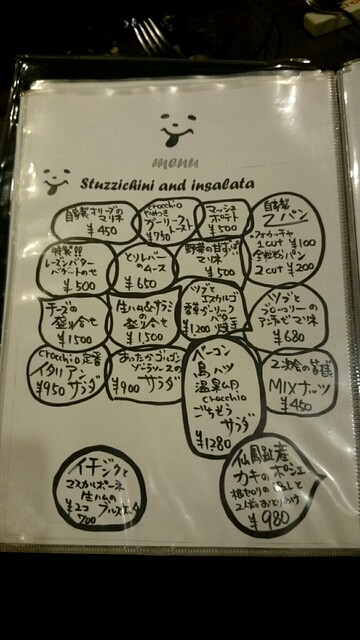 menu
Stuzzichini and insalata
自家製オリーブの
マリネ
¥450
crocchio
やみつき
ガーリック
トースト
¥750
マッシュ
ポテト
¥500
自家製
パン
フォカッチャ
1cut ¥100
全粒粉パン
2cut ¥200
特製!!
レーズンバター
バゲットのせ
¥500
とりレバー
のムース
¥650
野菜の甘ずっぱい
マリネ
¥500
チーズの
盛り合せ
¥1500
生ハム&サラミ
の
盛り合せ
¥1,500
ツブと
エスカルゴ
香草ガーリック
バター焼き
¥1,200
ツブと
ブロッコリーの
アンチョビマリネ
¥680
crocchio定番
イタリアン
サラダ
¥950
あったかゴルゴン
ゾーラソースの
サラダ
¥900
ベーコン
鳥ハツ
温泉卵
crocchio
ごちそう
サラダ
¥1280
2次会の皆様
MIXナッツ
¥450
イチジクと
マスカルポーネ
生ハムの
ブルスケッタ
¥2コ
700
仙鳳趾産
カキのポシェ
¥980